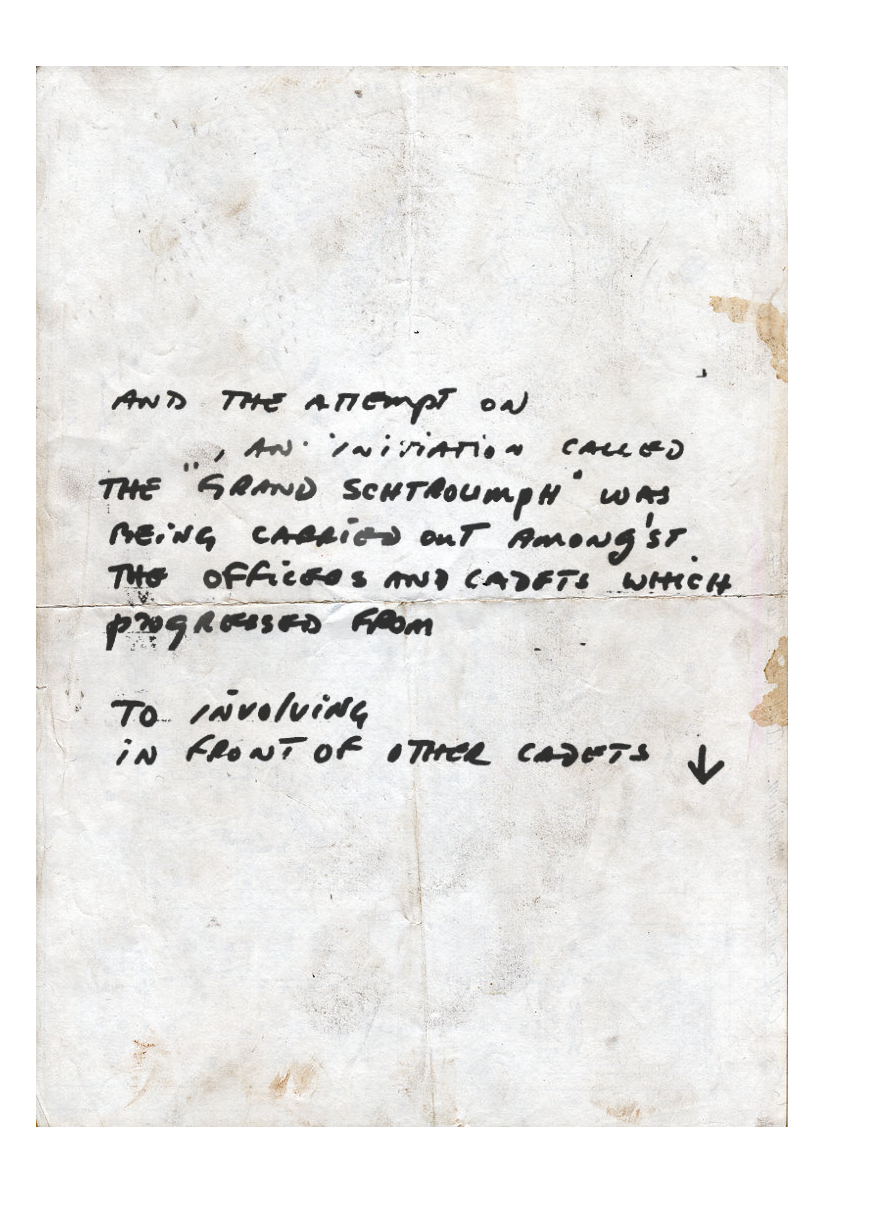 AND THE ATTEMPT ON
, AN INITIATION CALLED
THE "GRAND SCHTROUMPH" WAS
BEING CARRIED OUT AMONG'ST
THE OFFICERS AND CADETS WHICH
PROGRESSED FROM
TO INVOLVING
IN FRONT OF OTHER CADETS ↓